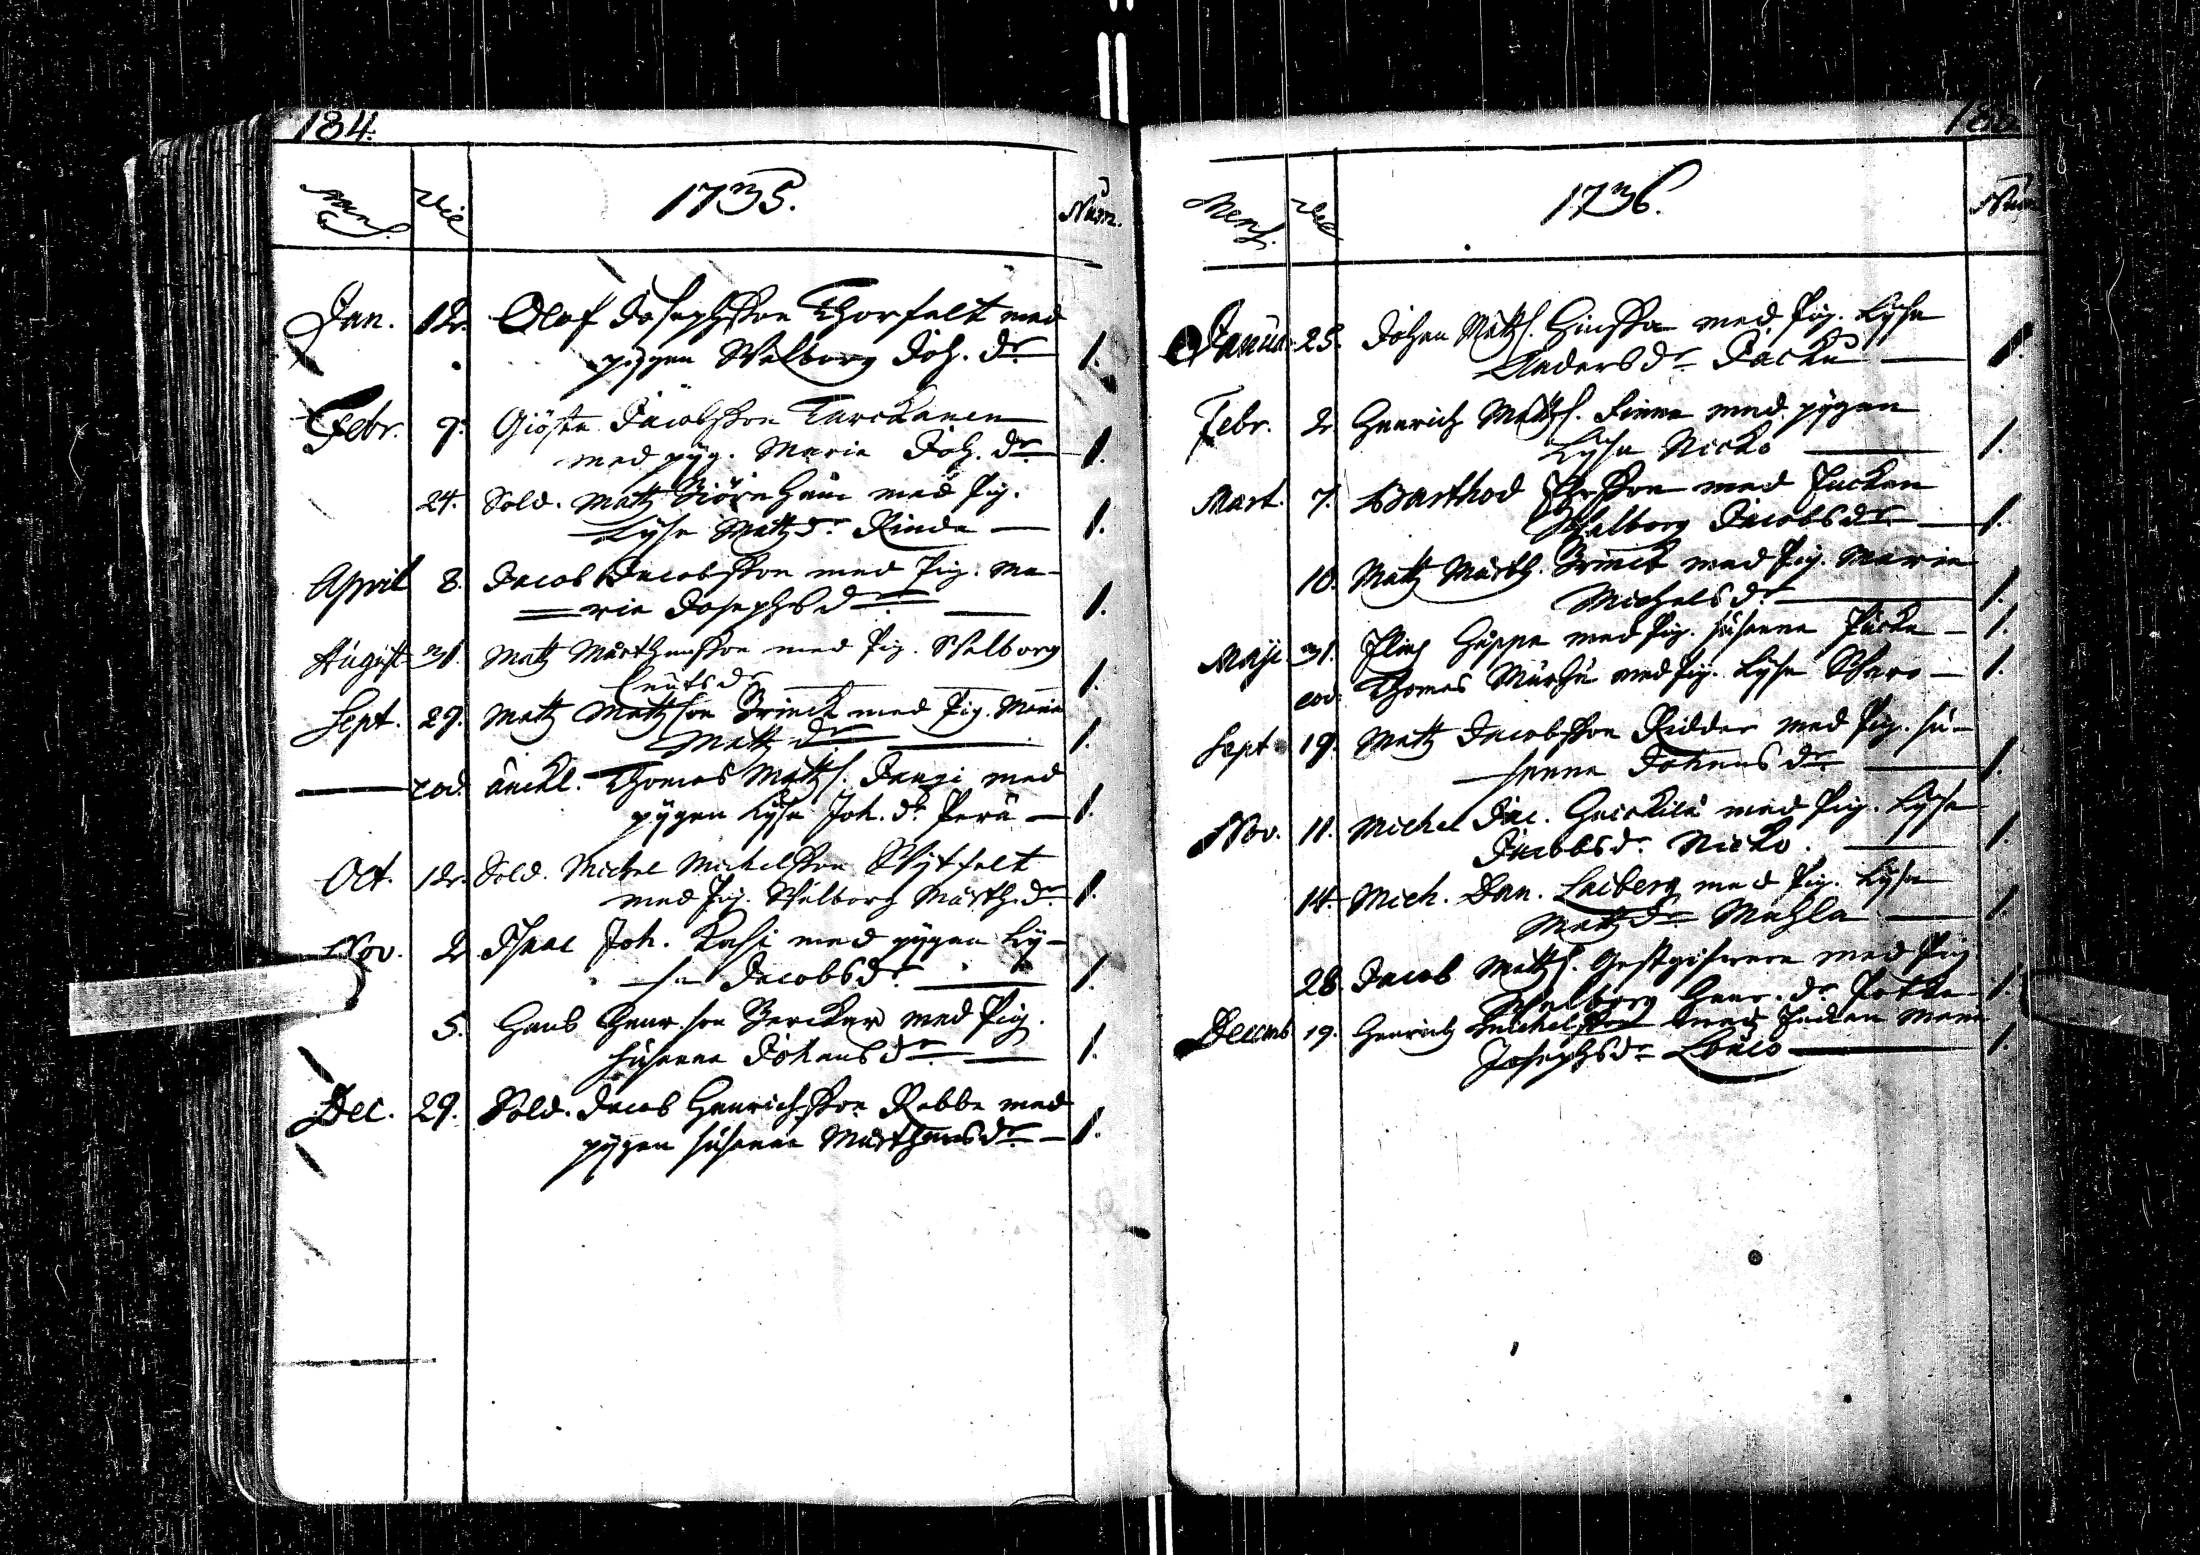 184.
Mens. Die 1735. Num.
Jan. 12. Olof Josephsson Thorfelt med
pygen Walborg Joh. dr 1.
Febr. 9. Giösta Jacobsson Tarckanen
med pyg. Maria Joh. dr 1.
24. Sold. Matz Biörnhain med Pig.
Lysa Matzdr Rinda 1.
April 8. Jacob Jacobsson med Pig. Ma-
ria Josephsdr 1.
August 31. Matz Marthensson med Pig. Walborg
Cnutsdr 1.
Sept. 29. Matz Mattsson Brinck med Pig. Maria
Matzdr 1.
eod. änckl. Thomas Matts. Jangi med
pygen Lysa Joh. dr Perä 1.
Oct. 12. Sold. Michel Michelsson Wytfelt
med Pig. Walborg Märth. dr 1.
Nov. 2. Isaac Joh. Kassi med pygen Ly-
sa Jacobsdr. 1.
5. Hans Henr.son Bercker med Pig.
Susanna Johansdr 1.
Dec. 29. Sold. Jacob Henrichsson Rabbe med
pygen Susanna Marthensdr 1.
Mens. Die 1736. Num
Januar. 25. Johan Matts. med Pig. Lysa
Andersdr Jacku 1.
Febr. 2. Henrich Matts. Finne med pygen
Lysa Nicko 1.
Mart. 7. Barthod med Enckan
Walborg Jacobsdr 1.
10. Matz Märth. Brinck med Pig. Maria
Michelsdr 1.
Maji 31. Elias Huppa med Pig. Susanna 1.
eod. Thomas Murhu med Pig. Lysa Wharo 1.
Sept 19. Matz Jacobsson Ridder med Pig. Su-
sanna Johansdr. 1.
Nov. 11. Michel Jac. Heickilä med Pig. Lysa
Jacobsdr. Nicko. 1.
14. Mich. Dan. Laiberg med Pig. Lysa
Matzdr Mahla 1.
28. Jacob Matts. Gestgifware med Pig
Walborg Henr. dr 1.
Decemb 19. Henrich Michelsson med Enckan Maria
Josephsdr 1.